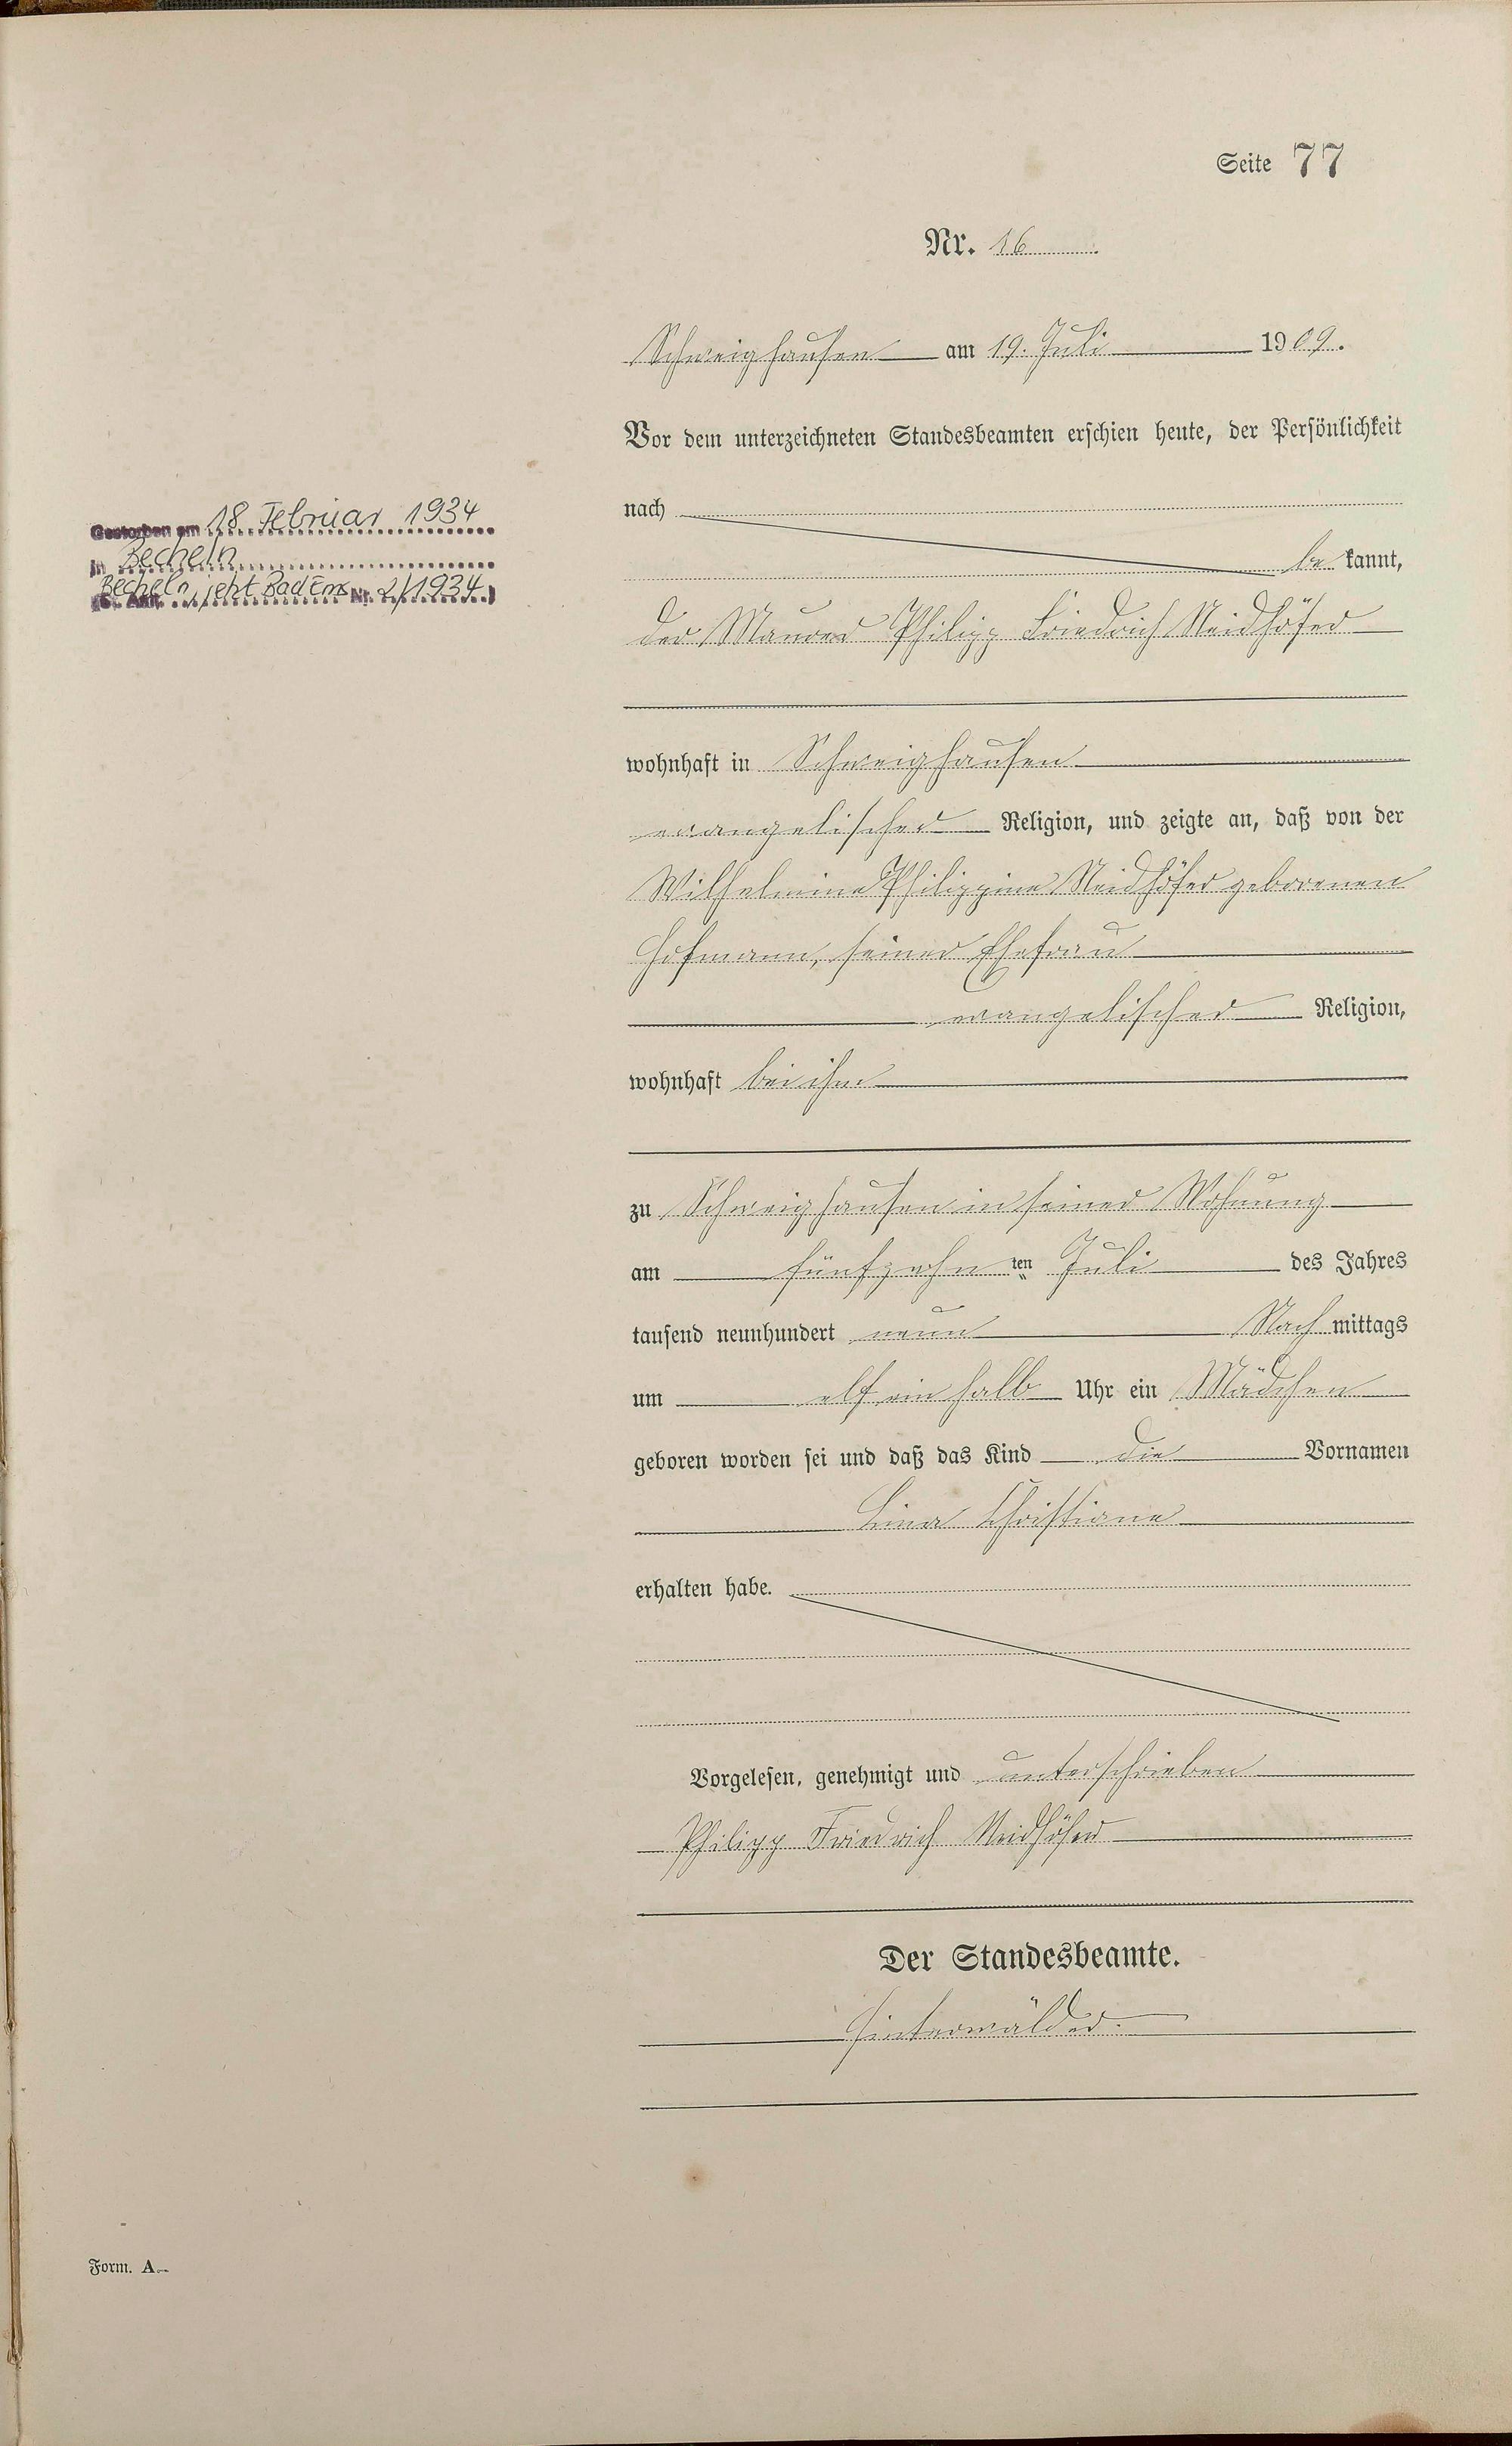 Seite 77
Nr. 16
Schweighausen am 19. Juli 1909.
Vor dem unterzeichneten Standesbeamten erschien heute, der Persönlichkeit
nach
be kannt,
der Maurer Philipp Friedrich Neidhöfer
wohnhaft in Schweighausen
evangelischer Religion, und zeigte an, daß von der
Wilhelmine Philippine Neidhöfer geborenen
Hofmann, seiner Ehefrau
evangelischer Religion,
wohnhaft bei ihm
zu Schweighausen in seiner Wohnung
am fünfzehn ten Juli des Jahres
tausend neunhundert neun Nach mittags
um elf ein halb Uhr ein Mädchen
geboren worden sei und daß das Kind die Vornamen
Lina Christiane
erhalten habe.
Vorgelesen, genehmigt und unterschrieben
Philipp Friedrich Neidhöfer
Der Standesbeamte.
Hinterwälder.
Gestorben am 18. Februar 1934
in Becheln
Becheln, jetzt Bad Ems Nr. 2/1934)
Form. A.